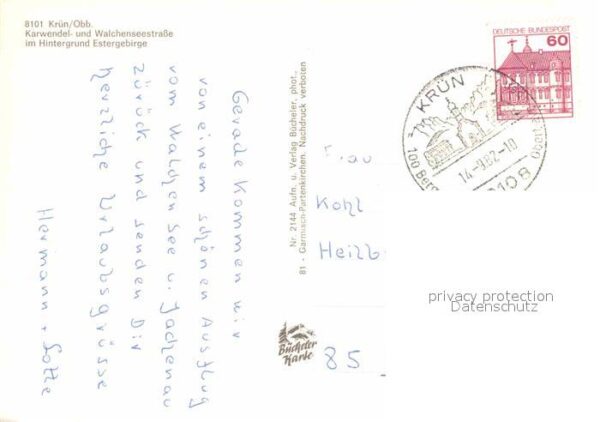 8101 Krün/Obb.
Karwendel- und Walchenseestraße
im Hintergrund Estergebirge
Gerade kommen wir
von einem schönen Ausflug
vom Walchensee u. Jachenau
zurück und senden Dir
herzliche Urlaubsgrüsse
Hermann + Lotte
Nr. 2144 Aufn. u. Verlag Bücheler, phot.,
81 - Garmisch-Partenkirchen. Nachdruck verboten
Bücheler
Karte
DEUTSCHE BUNDESPOST
60
KRÜN
14.-9.82.-10
8108
Frau
Kohl
Heilb
85
privacy protection
Datenschutz